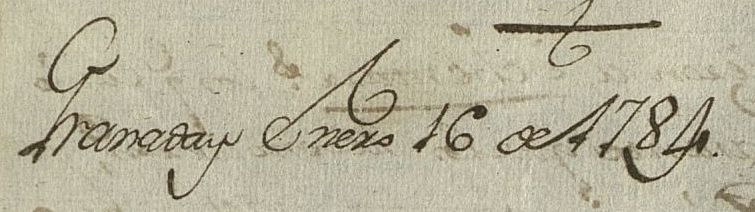 Granada y Enero 16 de 1784.